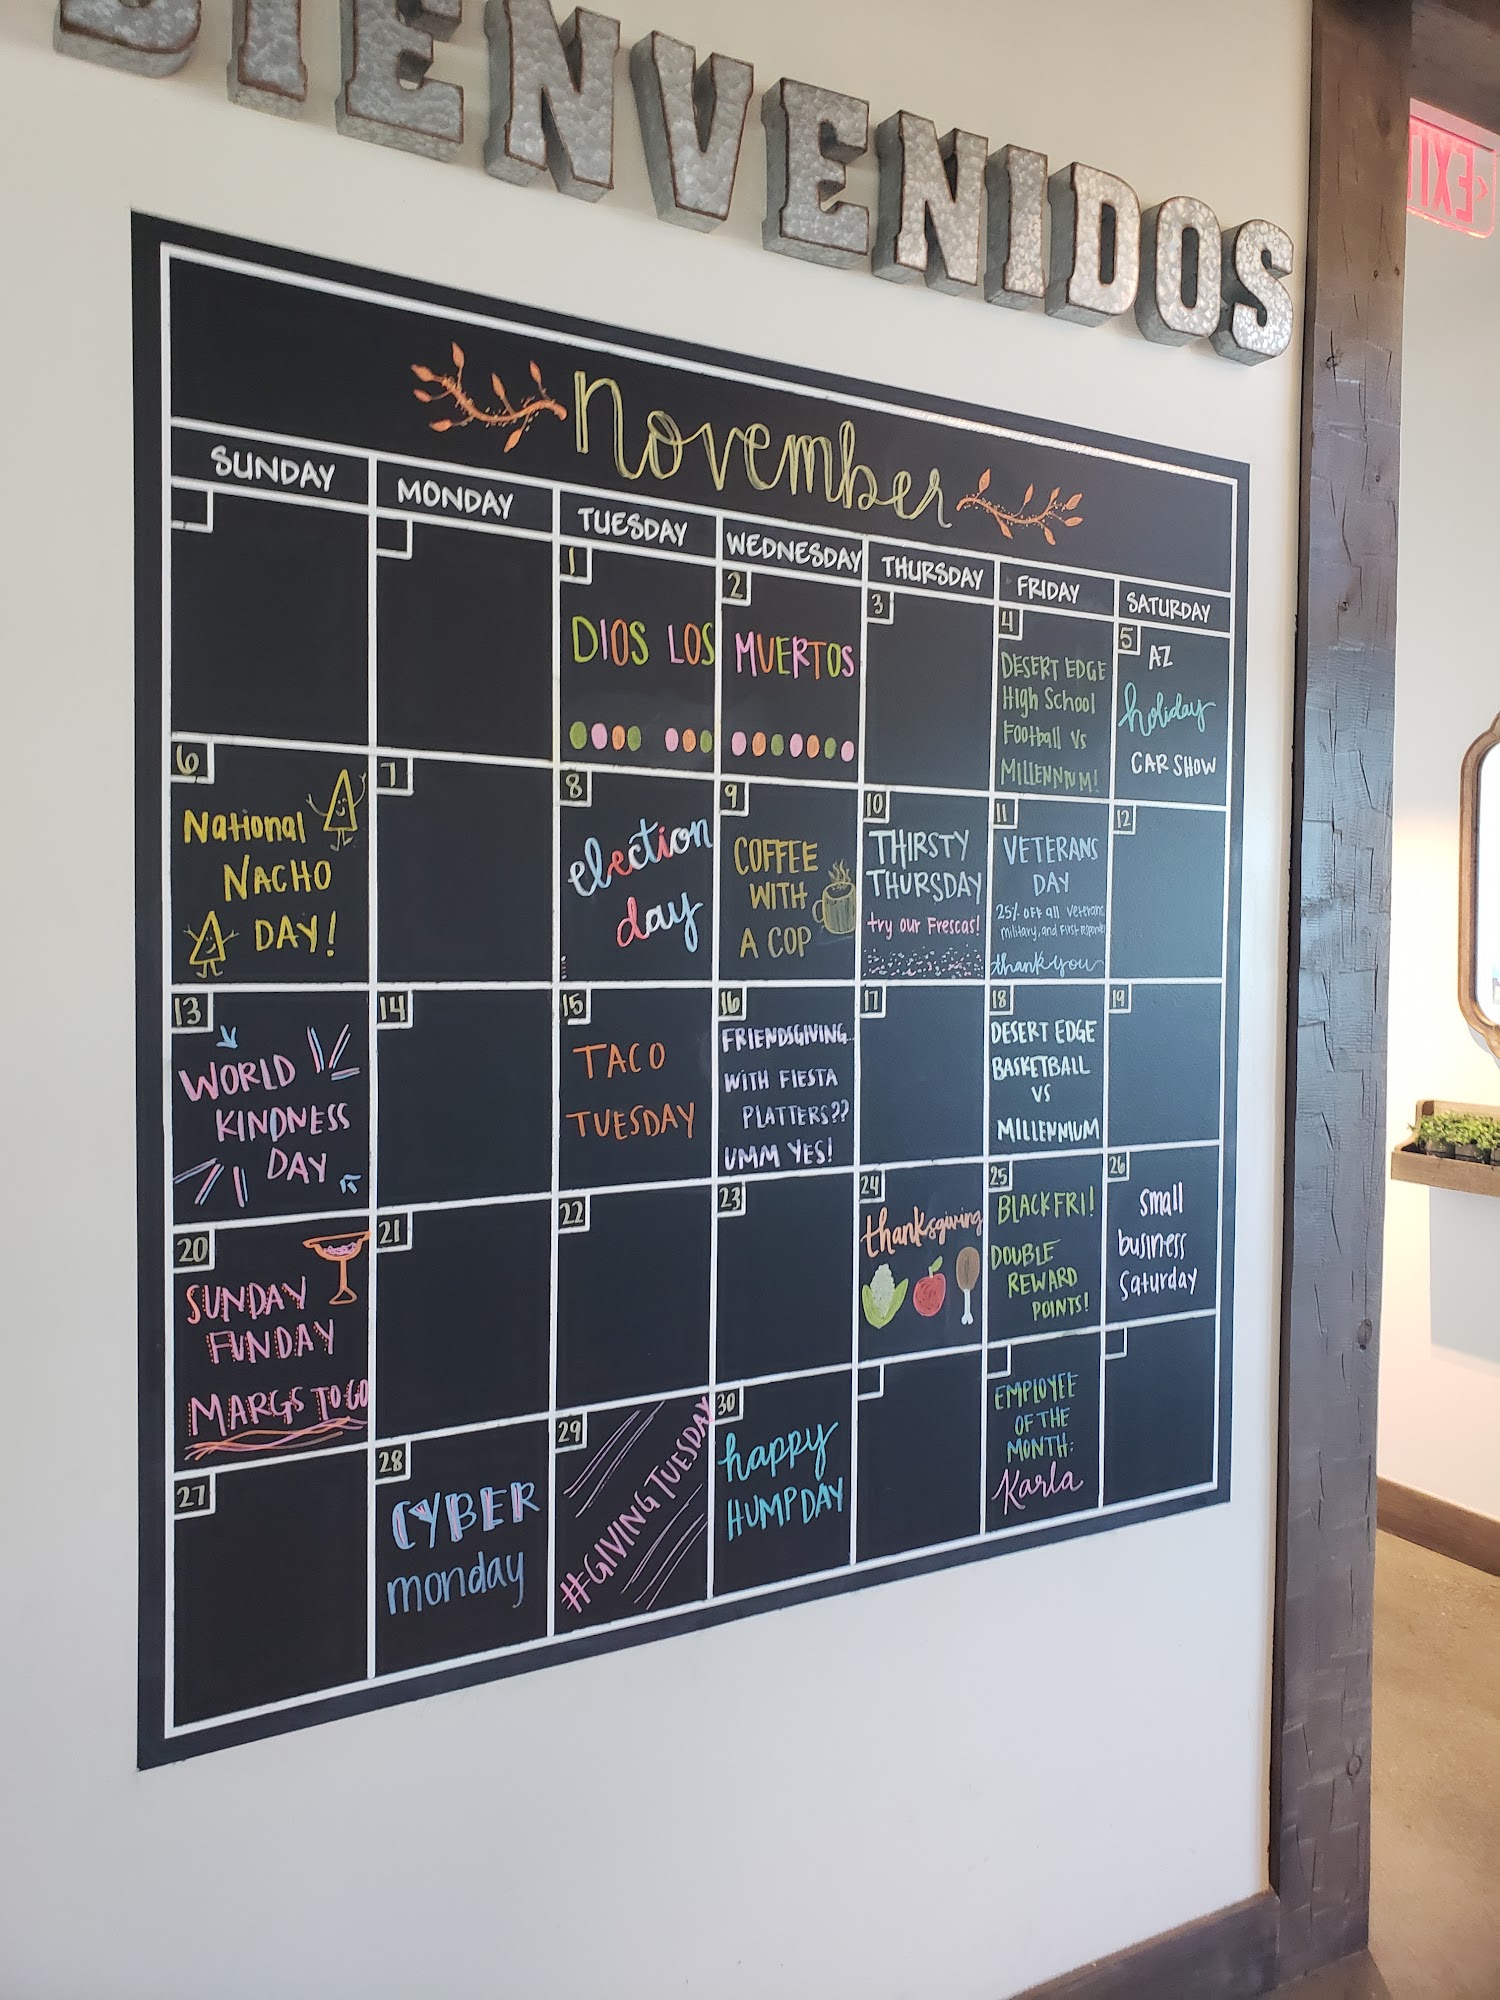 BIENVENIDOS
EXIT
November
SUNDAY MONDAY TUESDAY WEDNESDAY THURSDAY FRIDAY SATURDAY
1
DIOS LOS
2
MUERTOS
3
4
DESERT EDGE
High School
Football Vs
MILLENNIUM!
5
AZ
holiday
CAR SHOW
6
National
NACHO
DAY!
7
8
election
day
9
COFFEE
WITH
A COP
10
THIRSTY
THURSDAY
try our Frescas!
11
VETERANS
DAY
25% OFF all veterans,
military, and First responders
thank you
12
13
WORLD
KINDNESS
DAY
14
15
TACO
TUESDAY
16
FRIENDSGIVING...
WITH FIESTA
PLATTERS??
UMM YES!
17
18
DESERT EDGE
BASKETBALL
VS
MILLENNIUM
19
20
SUNDAY
FUNDAY
MARGS TO GO
21
22
23
24
thanksgiving
25
BLACK FRI!
DOUBLE
REWARD
POINTS!
26
Small
business
Saturday
27
28
CYBER
monday
29
#GIVING TUESDAY
30
happy
HUMPDAY
EMPLOYEE
OF THE
MONTH:
Karla